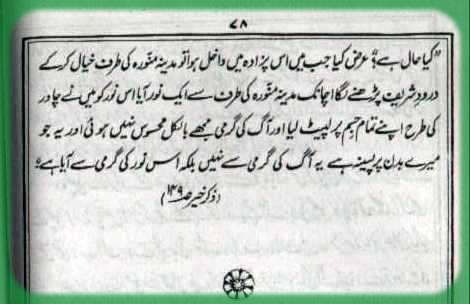 ۷۸
"کیا حال ہے؟" عرض کیا جب میں اس پزادہ میں داخل ہوا تو مدینہ منورہ کی طرف خیال کر کے
درود شریف پڑھنے لگا اچانک مدینہ منورہ کی طرف سے ایک نور آیا اس نور کو میں نے چادر
کی طرح اپنے تمام جسم پر لپیٹ لیا اور آگ کی گرمی مجھے بالکل محسوس نہیں ہوئی اور یہ جو
میرے بدن پر پسینہ ہے یہ آگ کی گرمی سے نہیں بلکہ اس نور کی گرمی سے آیا ہے"
(ذکر خیر صـ۱۴۹)